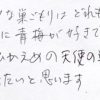 な巣ごもりは どれも
に青梅が好きで
ひかえめの天使の
たいと思います.